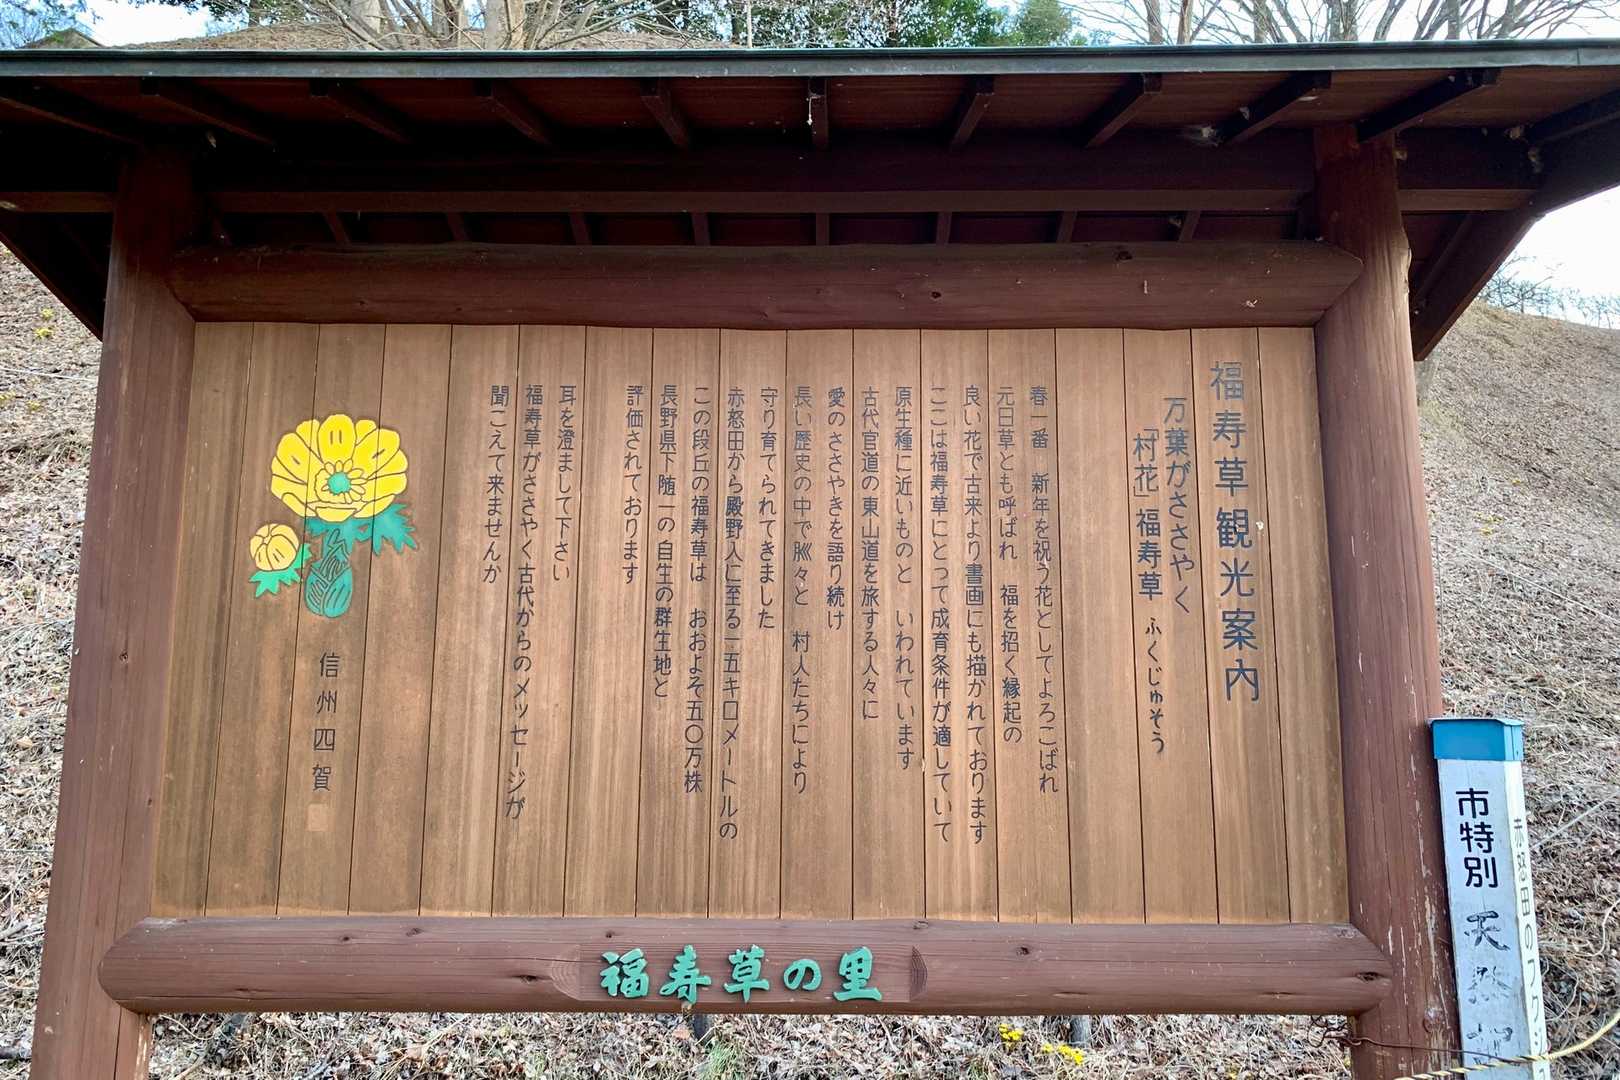 福寿草観光案内
万葉がささやく
「村花」福寿草 ふくじゅそう
春一番 新年を祝う花としてよろこばれ
元日草とも呼ばれ 福を招く縁起の
良い花で古来より書画にも描かれております
ここは福寿草にとって成育条件が適していて
原生種に近いものと いわれています
古代官道の東山道を旅する人々に
愛のささやきを語り続け
長い歴史の中で脈々と 村人たちにより
守り育てられてきました
赤怒田から殿野入に至る一五キロメートルの
この段丘の福寿草は おおよそ五〇万株
長野県下随一の自生の群生地と
評価されております
耳を澄まして下さい
福寿草がささやく古代からのメッセージが
聞こえて来ませんか
信州四賀
福寿草の里
市特別 天然
赤怒田のフクジ